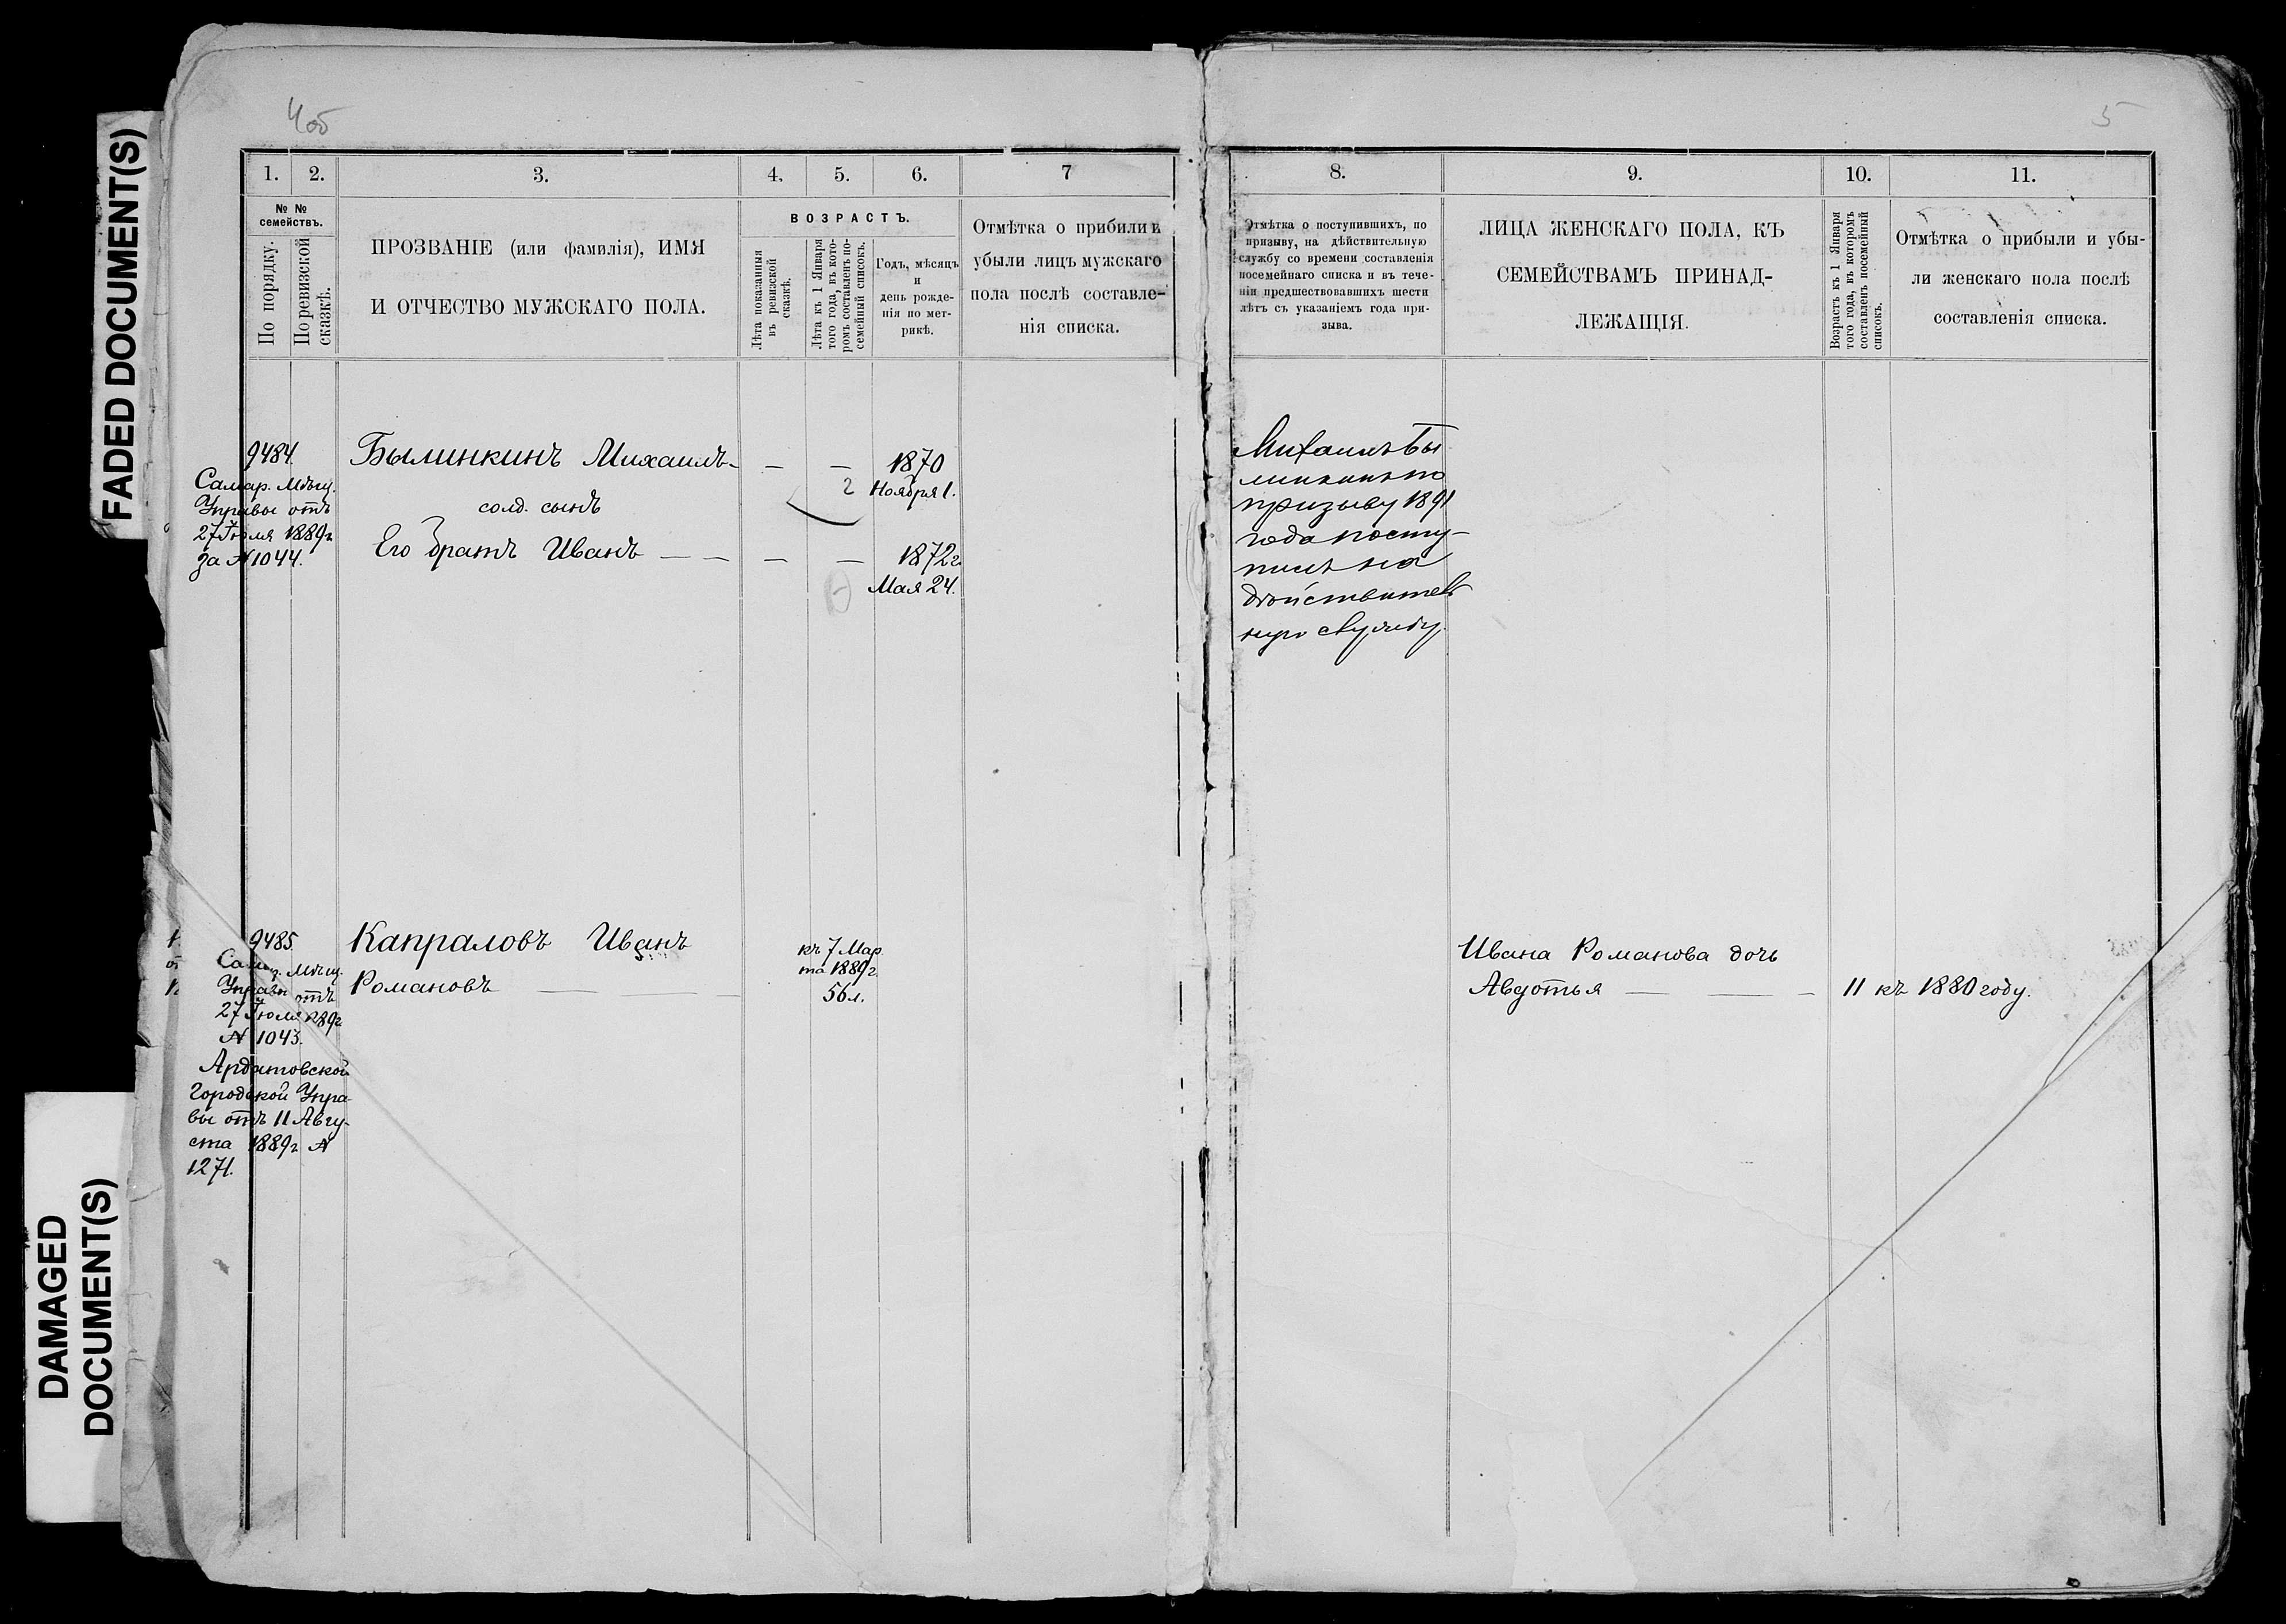 FADED DOCUMENT(S)
DAMAGED
DOCUMENT(S)
4об
1.
2.
3.
4.
5.
6.
7
№ №
семействъ.
По порядку.
По ревизской
сказкѣ.
ПРОЗВАНІЕ (или фамилія), ИМЯ
И ОТЧЕСТВО МУЖСКАГО ПОЛА.
ВОЗРАСТЪ.
Лѣта показанныя
въ ревизской
сказкѣ.
Лѣта къ 1 Января
того года, въ кото-
ромъ составленъ по-
семейный списокъ.
Годъ, мѣсяцъ
и
день рожде-
нія по мет-
рикѣ.
Отмѣтка о прибыли и
убыли лицъ мужскаго
пола послѣ составле-
нія списка.
9484.
Самар. Мѣщ.
Управы отъ
27 Іюля 1889г
за № 1044.
Былинкинъ Михаилъ — — —
солд. сынъ
1870
2 Ноября 1.
Его братъ Иванъ — — — —
1872г.
Мая 24.
9485.
Самар. Мѣщ.
Управы отъ
27 Іюля 1889г
№ 1043.
Ардатовской
Городской Упра-
вы отъ 11 Авгу-
ста 1889г №
1271.
Капраловъ Иванъ
Романовъ — —
къ 7 Мар
та 1889г.
56 л.
5
8.
9.
10.
11.
Отмѣтка о поступившихъ, по
призыву, на дѣйствительную
службу со времени составленія
посемейнаго списка и въ тече-
ніи предшествовавшихъ шести
лѣтъ съ указаніемъ года при-
зыва.
ЛИЦА ЖЕНСКАГО ПОЛА, КЪ
СЕМЕЙСТВАМЪ ПРИНАД-
ЛЕЖАЩІЯ.
Возрастъ къ 1 Января
того года, въ которомъ
составленъ посемейный
списокъ.
Отмѣтка о прибыли и убы-
ли женскаго пола послѣ
составленія списка.
Михаилъ Бы
линкинъ по
призыву 1891
года посту-
пилъ на
дѣйствитель
ную службу.
Ивана Романова дочь
Авдотья — — — 11 къ 1880 году.